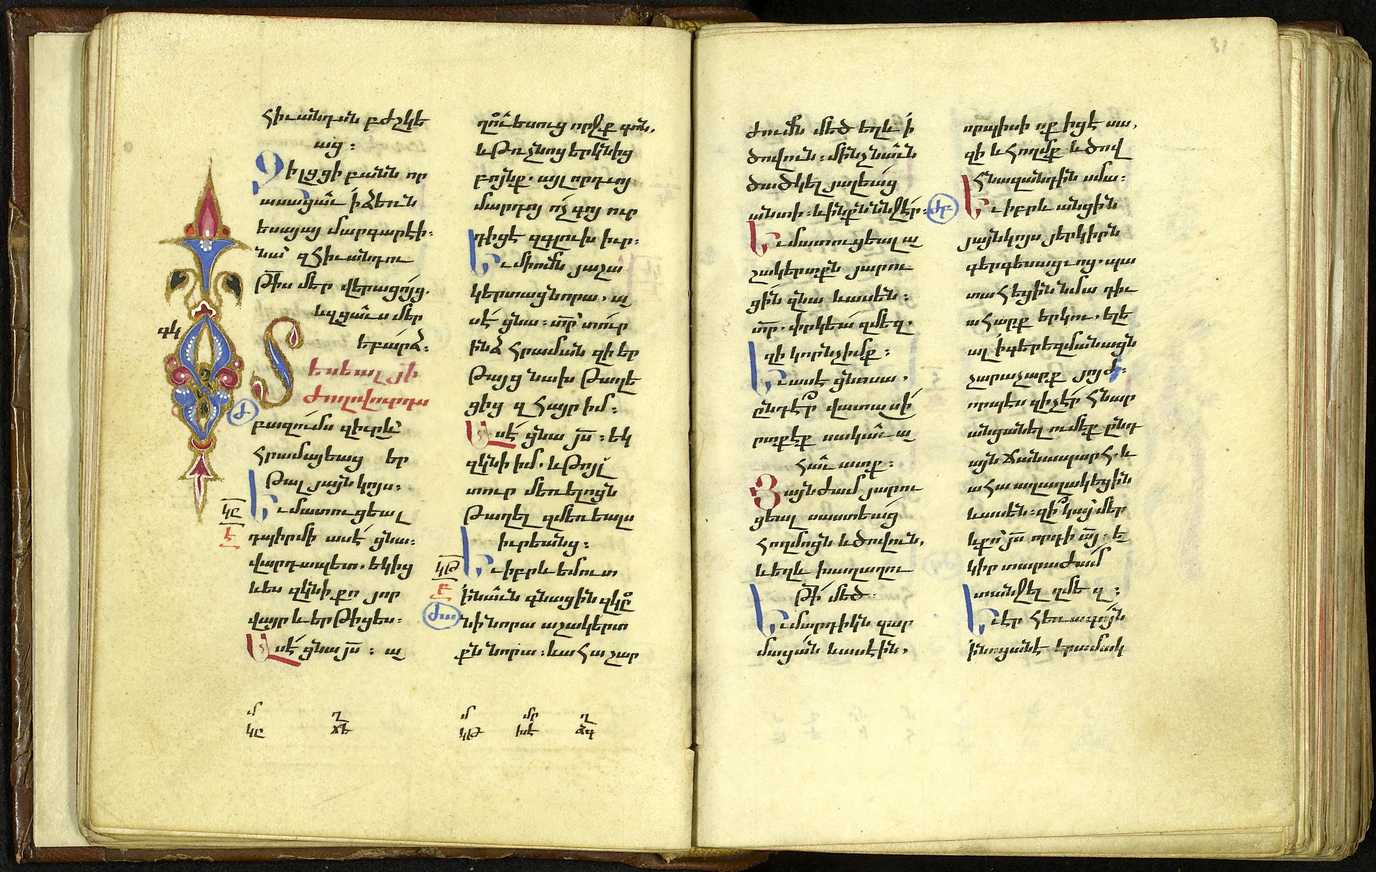 հիւանդսն բժշկե
աց :
Զի լցցի բանն որ
ասացաւ ի ձեռն
եսայայ մարգարէի.
նա՛ զհիւանդու
թիս մեր վերացոյց.
և զցաւս մեր
եբարձ :
գկ
Տեսեալ յի
ժողովուրդս
ժ
բազումս զիւրև՝
հրամայեաց եր
թալ յայն կոյս :
կը
Եւ մատուցեալ
է
դպիր մի ասէ ցնա :
վարդապետ, եկից
և ես զկնի քո յոր
վայր և երթիցես :
Ասէ ցնա յս : աղ
մ ղ
կը ԾԵ
ղուեսուց որջք գոն,
և թռչնոց երկնից
բոյնք. այլ որդւոյ
մարդոյ ոչ գոյ ուր
դիցէ զգլուխ իւր :
Եւ միումն յաշա
կերտաց նորա, ա
սէ ցնա : տր՛ տուր
ինձ հրաման զի եր
թայց նախ թաղե
ցից զհայր իմ :
Ասէ ցնա յս : եկ
զկնի իմ, և թոյլ
տուր մեռելոցն
թաղել զմեռեալս
իւրեանց :
կթ
Եւ իբրև եմուտ
ի նաւն գնացին զկը
ժա
նի նորա աշակերտ
քն նորա : և ահա շար
մ մը ղ
կթ խէ ձգ
31
ժումն մեծ եղև ի
ծովուն : մինչ նաւն
ծածկել յալեաց
անտի : և ինքն ննջէր :
Եւ մատուցեալ ա
շակերտքն յարու
ցին զնա և ասեն :
տր, փրկեա զմեզ,
զի կորնչիմք :
Եւ ասէ ցնոսա,
ընդէր վատասի
րտքէք սակաւ ա
հաւատք :
Յայնժամ յարու
ցեալ սաստեաց
հողմոյն և ծովուն,
և եղև խաղաղու
թի մեծ.
Եւ մարդիկն զար
մացան և ասէին,
որպիսի ոք իցէ սա,
զի և հողմք և ծով
հնազանդին սմա :
ժբ
Եւ իբրև անցին
յայնկոյս յերկիրն
գերգեսացւոց. պա
տահեցին նմա դիւ
ահարք երկու, ելե
ալ ի գերեզմանացն
չարաչարք յոյժ :
որպէս զի չէր հնար
անցանել ումեք ընդ
այն ճանապարհ. և
ահա աղաղակեցին
և ասեն : զի՞ կայ մեր
և քո յս որդի այ : ե
կիր տարաժամ
տանջել զմեզ :
Եւ էր հեռագոյն
ի նոցանէ երամակ